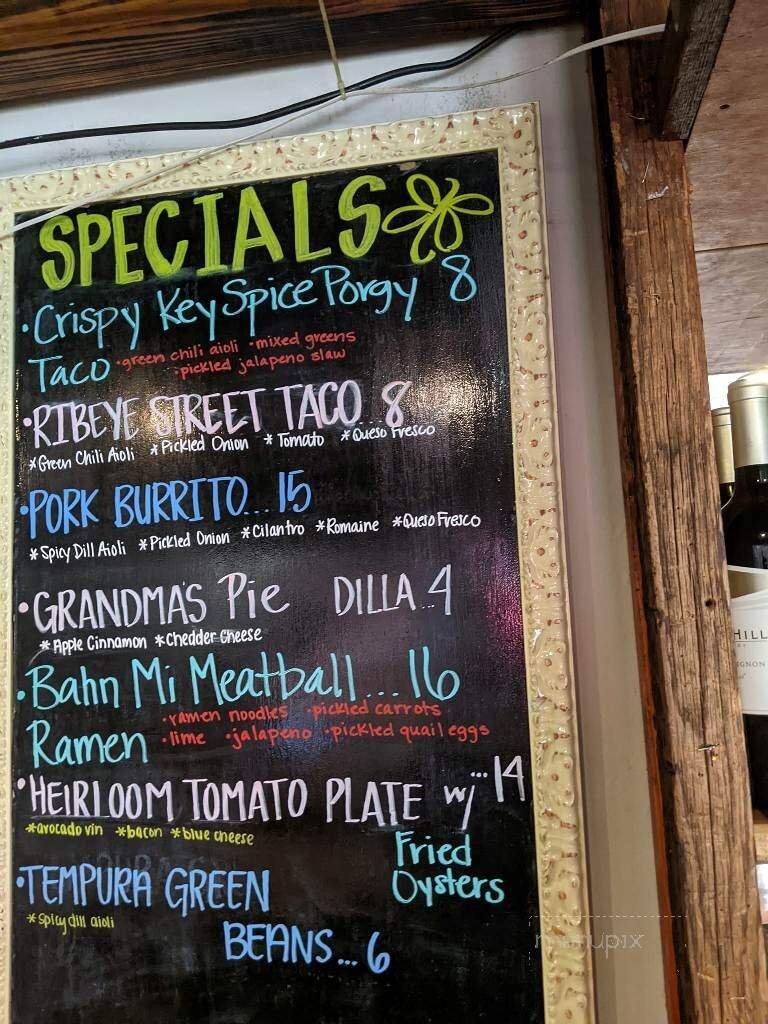 SPECIALS
·Crispy Key Spice Porgy 8
Taco ·green chili aioli ·mixed greens
·pickled jalapeno slaw
·RIBEYE STREET TACO. 8
*Green Chili Aioli *Pickled Onion *Tomato *Queso Fresco
·PORK BURRITO...15
*Spicy Dill Aioli *Pickled Onion *Cilantro *Romaine *Queso Fresco
·GRANDMA'S Pie DILLA..4
*Apple Cinnamon *Chedder Cheese
·Bahn Mi Meatball...16
Ramen ·ramen noodles ·pickled carrots
·lime ·jalapeno ·pickled quail eggs
·HEIRLOOM TOMATO PLATE w/ ...14
*avocado vin *bacon *blue cheese
Fried
Oysters
·TEMPURA GREEN
*Spicy dill aioli
BEANS...6
HILL
menupix